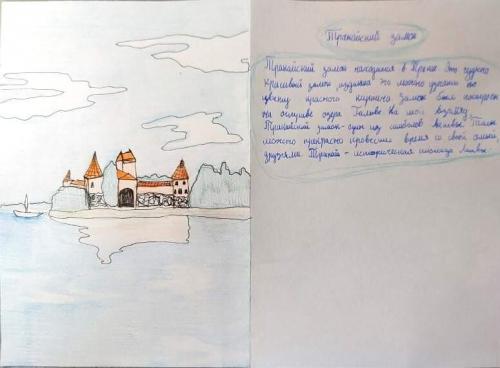 Тракайский замок
Тракайский замок находится в Тракае. Это чудно
красивый замок, издалека его можно узнать по
цвету красного кирпича. Замок был построен
на острове озера Гальве. На мой взгляд,
Тракайский замок - один из символов Литвы. Там
можно прекрасно провести время со своей семьёй,
друзьями. Тракай - историческая столица Литвы.